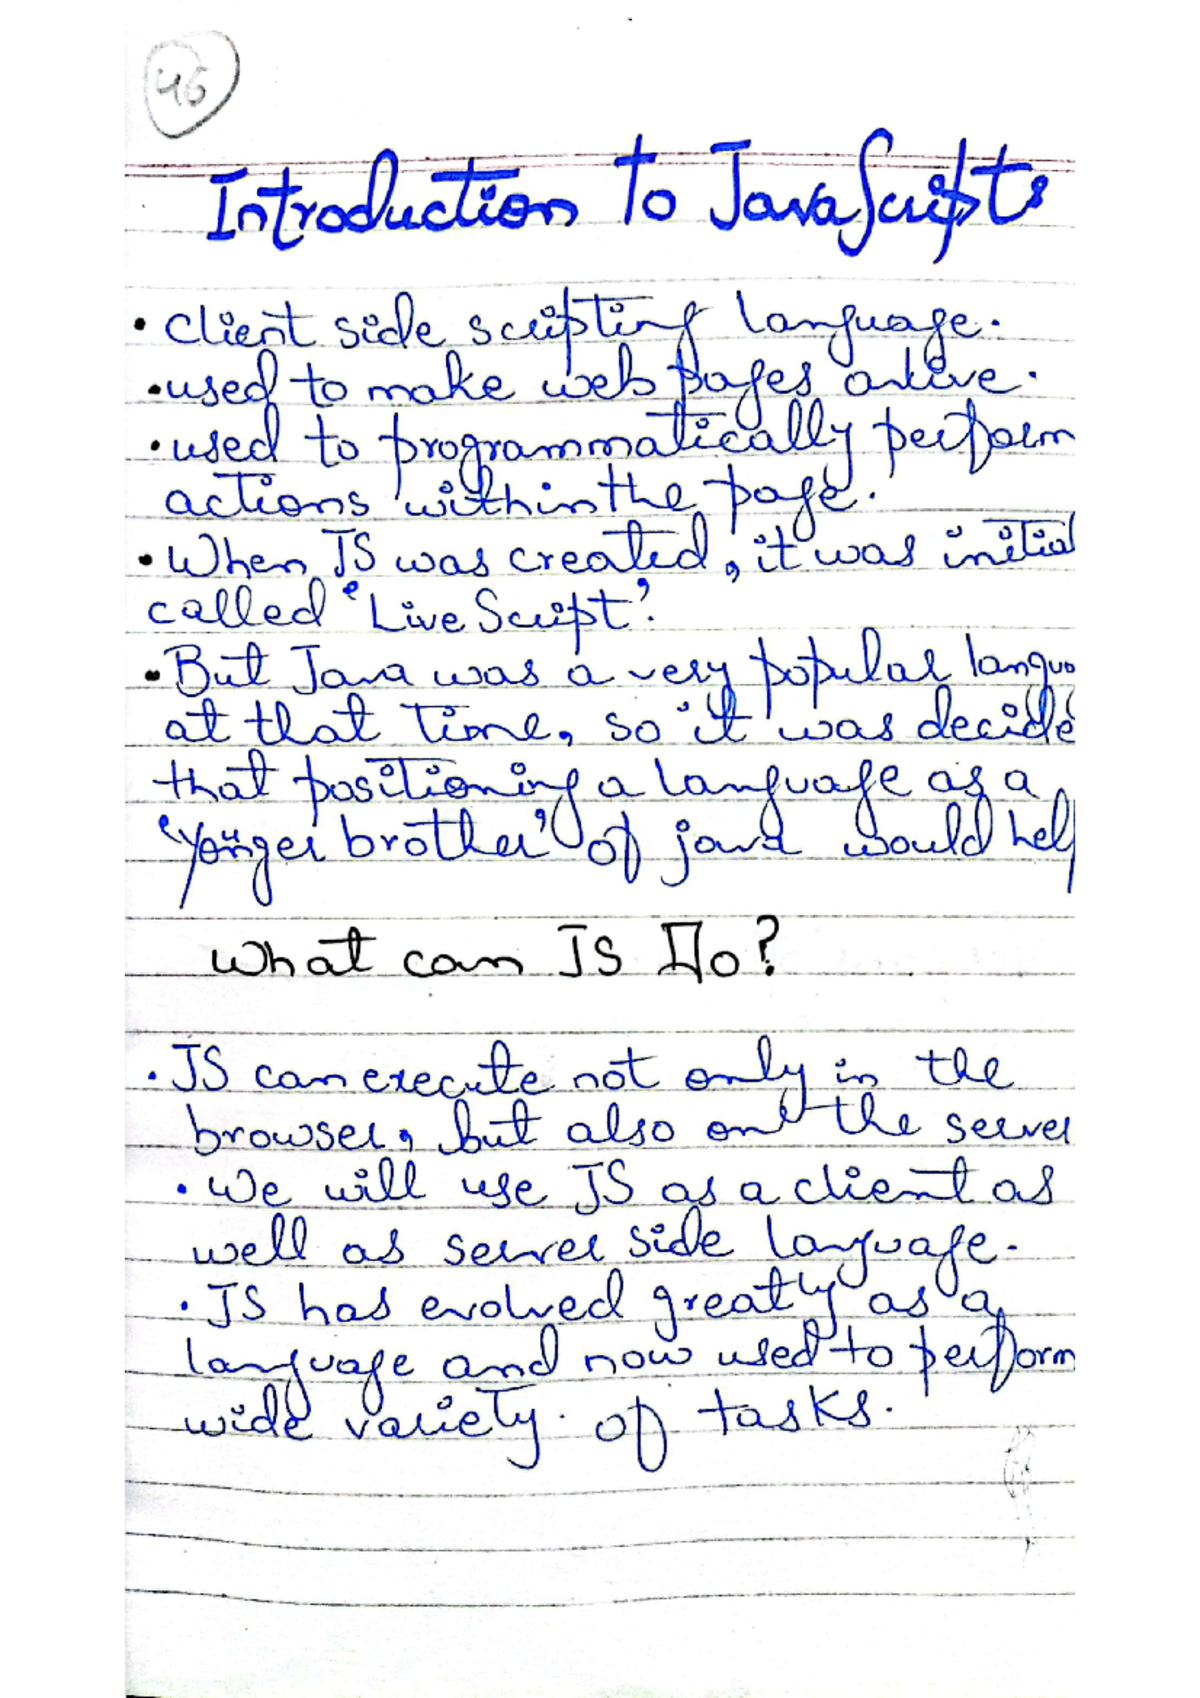 45
Introduction to JavaScripts
• Client side scripting language.
• used to make web pages alive.
• used to programmatically perform
actions within the page.
• When JS was created, it was initial
called 'Live Script'.
• But Java was a very popular langua
at that time, so it was decide
that positioning a language as a
'younger brother' of java would help
What can JS Do?
• JS can execute not only in the
browser, but also on the server
• We will use JS as a client as
well as server side language.
• JS has evolved greatly as a
language and now used to perform
wide variety of tasks.